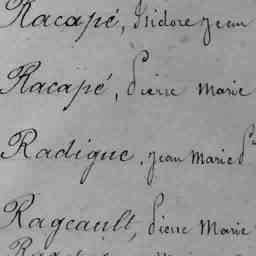 Racapé, Isidore Jean
Racapé, Pierre Marie
Radigue, Jean Marie P
Rageault, Pierre Marie